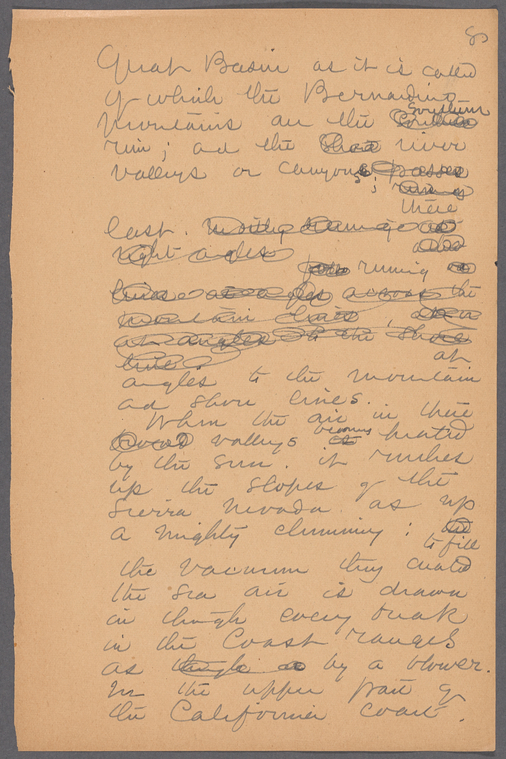 80
Great Basin as it is called
of which the Bernardino
Southern
Mountains are the
rim; and the river
valleys or canyons
there
east.
right angles
running
lines at angles across the
mountain lines
at angles to the shore
line
at
angles to the mountain
and shore lines.
When the air in these
valleys becomes heated
by the sun. it rushes
up the slopes of the
Sierra Nevada as up
a mighty chimney;
to fill
the vacuum thus created
the sea air is drawn
in through every break
in the Coast ranges
as by a blower.
In the upper part of
the California coast.